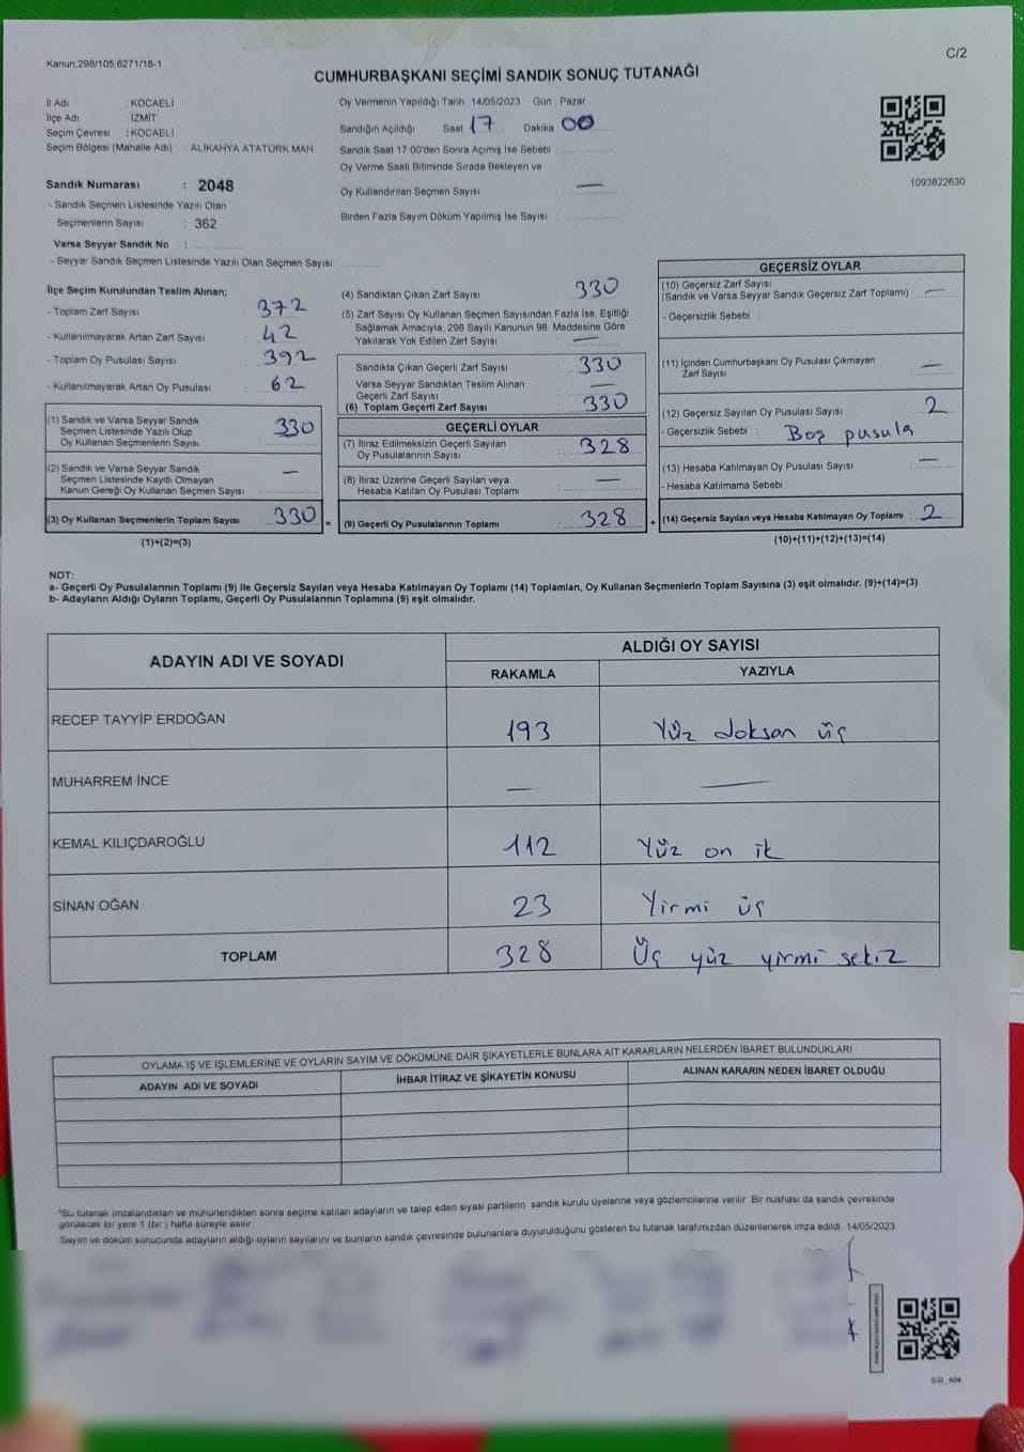 Kanun:298/105;6271/18-1
C/2
CUMHURBAŞKANI SEÇİMİ SANDIK SONUÇ TUTANAĞI
İl Adı : KOCAELİ
İlçe Adı : İZMİT
Seçim Çevresi : KOCAELİ
Seçim Bölgesi (Mahalle Adı) : ALİKAHYA ATATÜRK MAH.
Sandık Numarası : 2048
- Sandık Seçmen Listesinde Yazılı Olan
Seçmenlerin Sayısı : 362
Varsa Seyyar Sandık No :
- Seyyar Sandık Seçmen Listesinde Yazılı Olan Seçmen Sayısı
Oy Vermenin Yapıldığı Tarih 14/05/2023 Gün : Pazar
Sandığın Açıldığı Saat 17 Dakika 00
Sandık Saat 17:00'den Sonra Açılmış İse Sebebi :
Oy Verme Saati Bitiminde Sırada Bekleyen ve
Oy Kullandırılan Seçmen Sayısı —
Birden Fazla Sayım Döküm Yapılmış İse Sayısı
1093822630
İlçe Seçim Kurulundan Teslim Alınan;
- Toplam Zarf Sayısı 372
- Kullanılmayarak Artan Zarf Sayısı 42
- Toplam Oy Pusulası Sayısı 392
- Kullanılmayarak Artan Oy Pusulası 62
(1) Sandık ve Varsa Seyyar Sandık
Seçmen Listesinde Yazılı Olup
Oy Kullanan Seçmenlerin Sayısı 330
(2) Sandık ve Varsa Seyyar Sandık
Seçmen Listesinde Kayıtlı Olmayan
Kanun Gereği Oy Kullanan Seçmen Sayısı —
(3) Oy Kullanan Seçmenlerin Toplam Sayısı 330 =
(1)+(2)=(3)
(4) Sandıktan Çıkan Zarf Sayısı 330
(5) Zarf Sayısı Oy Kullanan Seçmen Sayısından Fazla İse, Eşitliği
Sağlamak Amacıyla, 298 Sayılı Kanunun 98. Maddesine Göre
Yakılarak Yok Edilen Zarf Sayısı —
Sandıkta Çıkan Geçerli Zarf Sayısı 330
Varsa Seyyar Sandıktan Teslim Alınan
Geçerli Zarf Sayısı —
(6) Toplam Geçerli Zarf Sayısı 330
GEÇERLİ OYLAR
(7) İtiraz Edilmeksizin Geçerli Sayılan
Oy Pusulalarının Sayısı 328
(8) İtiraz Üzerine Geçerli Sayılan veya
Hesaba Katılan Oy Pusulası Toplamı —
(9) Geçerli Oy Pusulalarının Toplamı 328 +
GEÇERSİZ OYLAR
(10) Geçersiz Zarf Sayısı
(Sandık ve Varsa Seyyar Sandık Geçersiz Zarf Toplamı) —
- Geçersizlik Sebebi
(11) İçinden Cumhurbaşkanı Oy Pusulası Çıkmayan
Zarf Sayısı —
(12) Geçersiz Sayılan Oy Pusulası Sayısı 2
- Geçersizlik Sebebi : Boş pusula
(13) Hesaba Katılmayan Oy Pusulası Sayısı —
- Hesaba Katılmama Sebebi
(14) Geçersiz Sayılan veya Hesaba Katılmayan Oy Toplamı 2
(10)+(11)+(12)+(13)=(14)
NOT:
a- Geçerli Oy Pusulalarının Toplamı (9) ile Geçersiz Sayılan veya Hesaba Katılmayan Oy Toplamı (14) Toplamları, Oy Kullanan Seçmenlerin Toplam Sayısına (3) eşit olmalıdır. (9)+(14)=(3)
b- Adayların Aldığı Oyların Toplamı, Geçerli Oy Pusulalarının Toplamına (9) eşit olmalıdır.
ADAYIN ADI VE SOYADI
ALDIĞI OY SAYISI
RAKAMLA YAZIYLA
RECEP TAYYİP ERDOĞAN 193 Yüz doksan üç
MUHARREM İNCE — —
KEMAL KILIÇDAROĞLU 112 Yüz on ik
SİNAN OĞAN 23 Yirmi üç
TOPLAM 328 Üç yüz yirmi sekiz
OYLAMA İŞ VE İŞLEMLERİNE VE OYLARIN SAYIM VE DÖKÜMÜNE DAİR ŞİKAYETLERLE BUNLARA AİT KARARLARIN NELERDEN İBARET BULUNDUKLARI
ADAYIN ADI VE SOYADI İHBAR İTİRAZ VE ŞİKAYETİN KONUSU ALINAN KARARIN NEDEN İBARET OLDUĞU
*Bu tutanak imzalandıktan ve mühürlendikten sonra seçime katılan adayların ve talep eden siyasi partilerin sandık kurulu üyelerine veya gözlemcilerine verilir. Bir nüshası da sandık çevresinde
görülecek bir yere 1 (bir) hafta süreyle asılır.
Sayım ve döküm sonucunda adayların aldığı oyların sayılarını ve bunların sandık çevresinde bulunanlara duyurulduğunu gösteren bu tutanak tarafımızdan düzenlenerek imza edildi. 14/05/2023